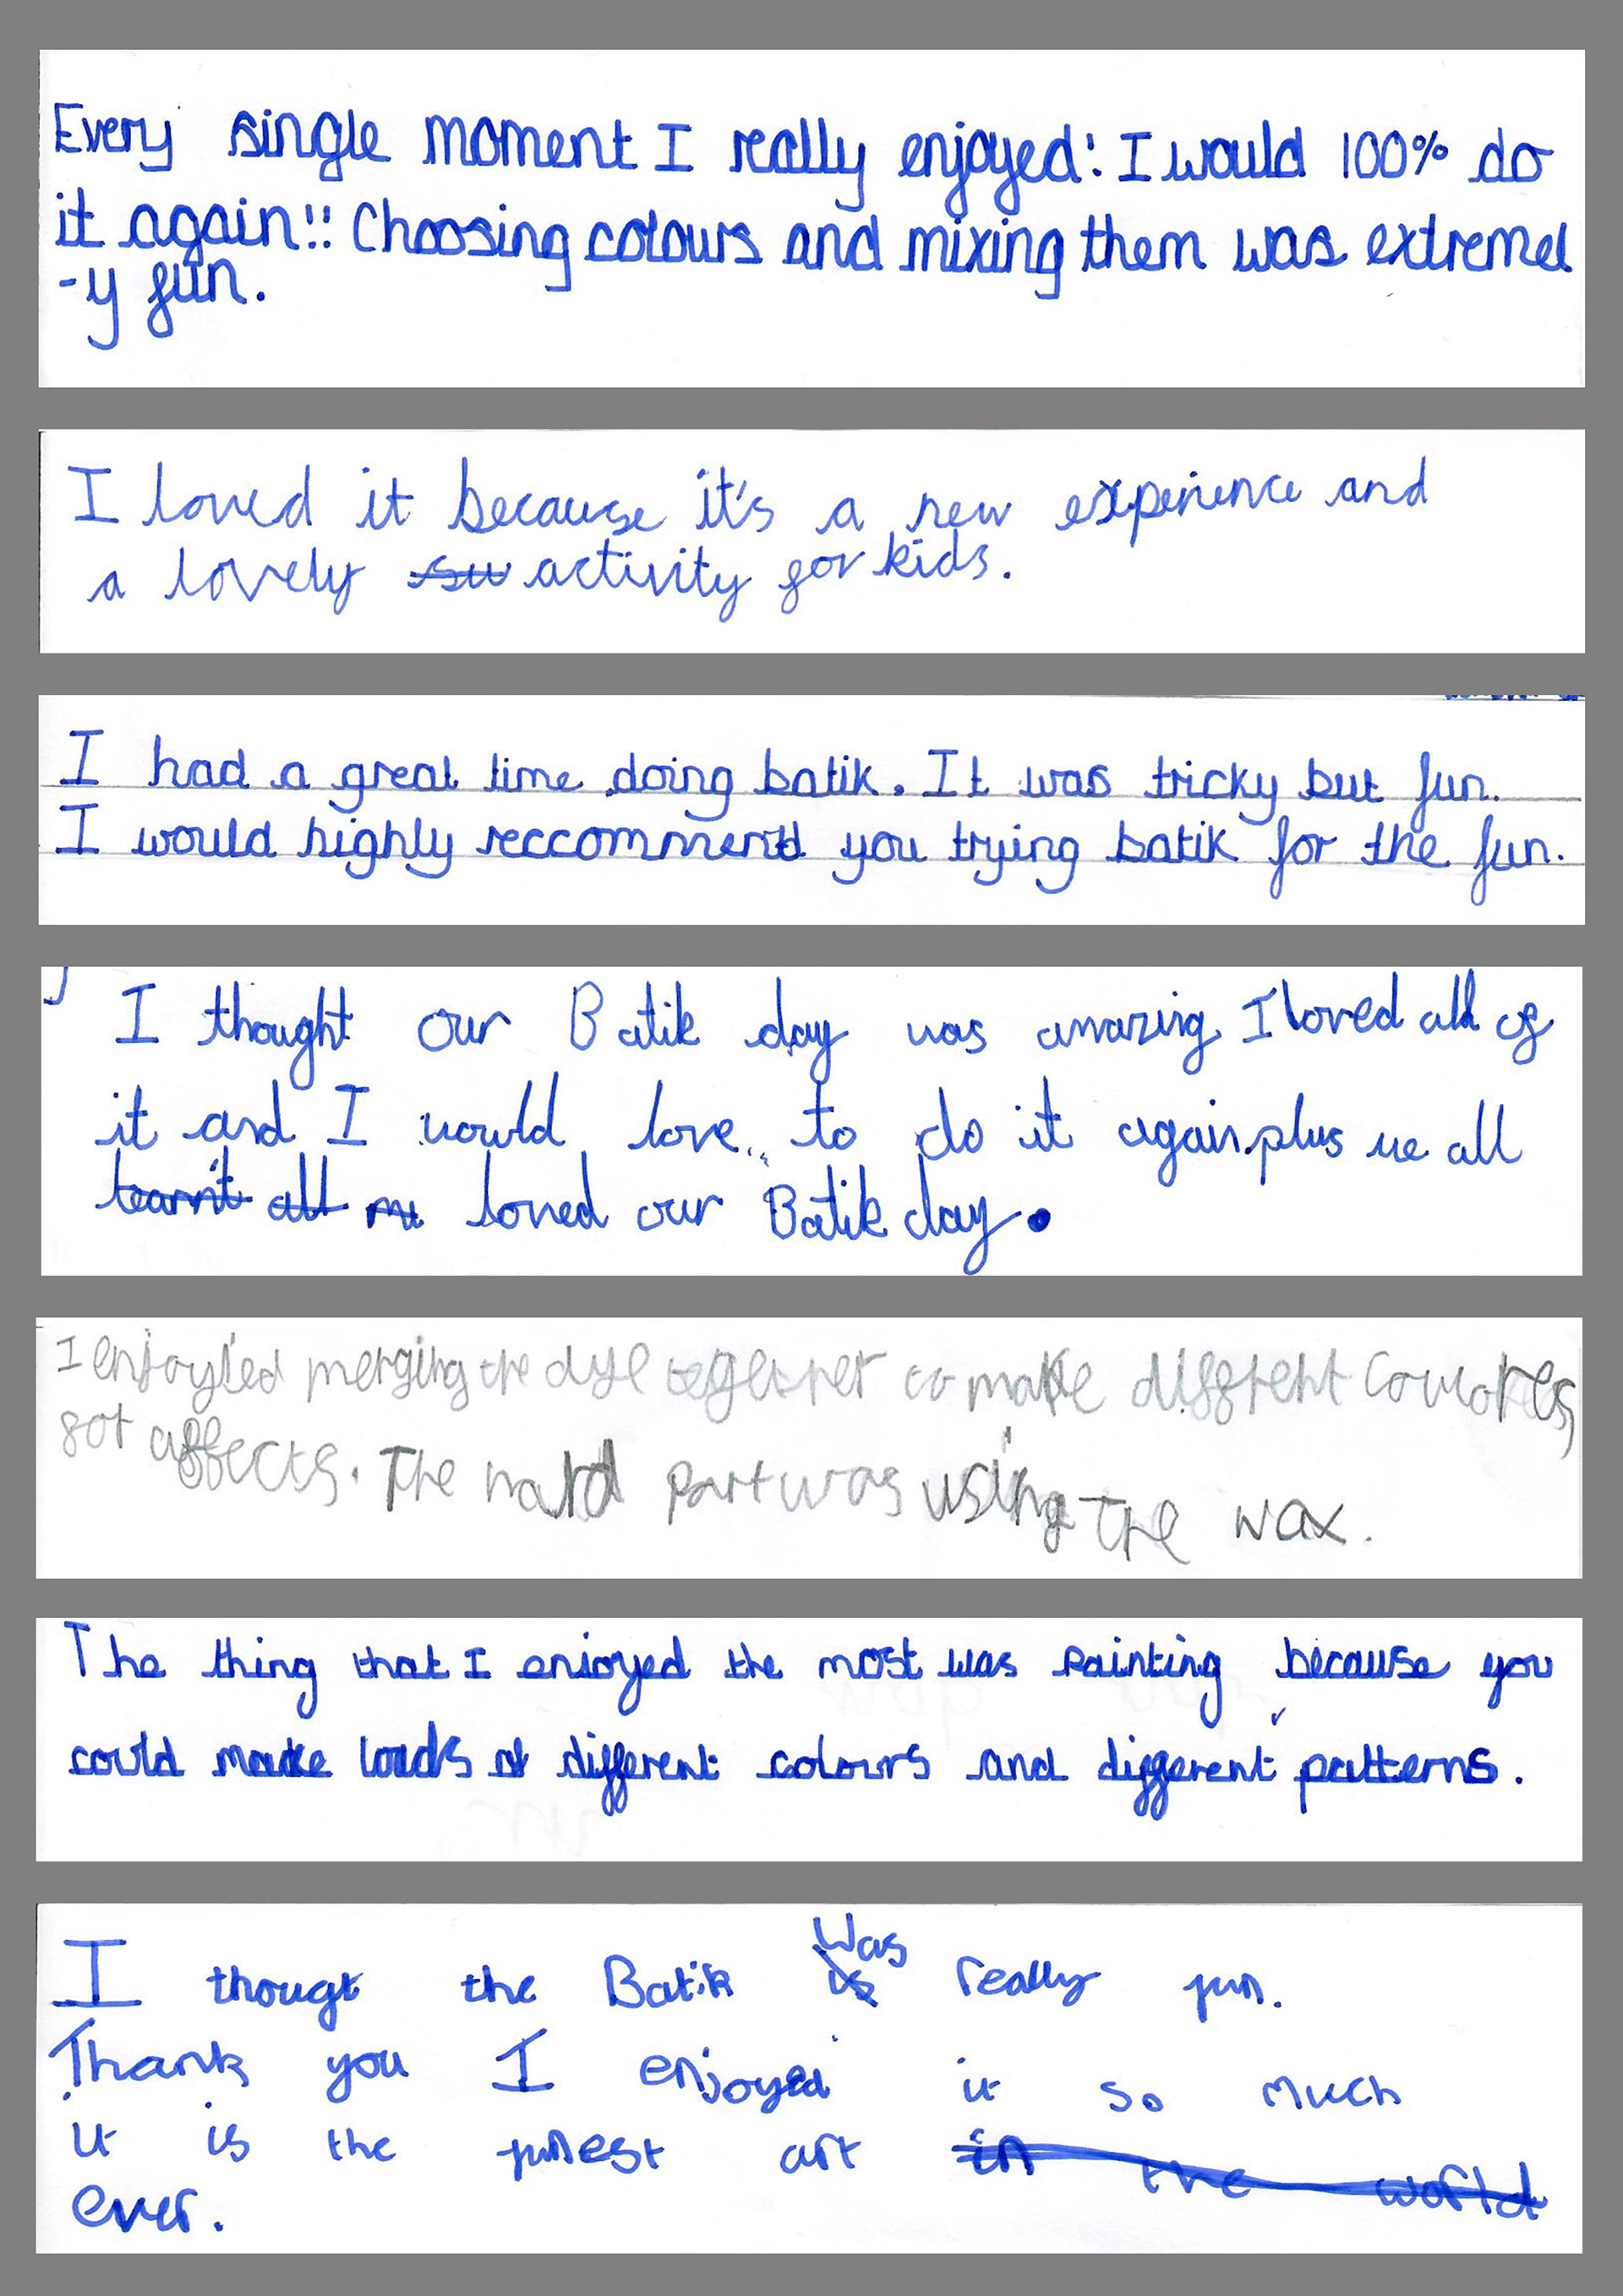 Every single moment I really enjoyed! I would 100% do
it again!! Choosing colours and mixing them was extremel
-y fun.
I loved it because it's a new experience and
a lovely su activity for kids.
I had a great time doing batik. It was tricky but fun.
I would highly reccommend you trying batik for the fun.
I thought our Batik day was amazing I loved all of
it and I would love to do it again.plus we all
learnt all loved our Batik day.
I enjoyied merging the dye together to make different
for affects. The hard part was using the wax.
The thing that I enjoyed the most was painting because you
could make loads of different colours and different patterns.
I thougt the Batik is was really fun.
Thank you I enjoyed it so much
it is the funest art in the world
ever.